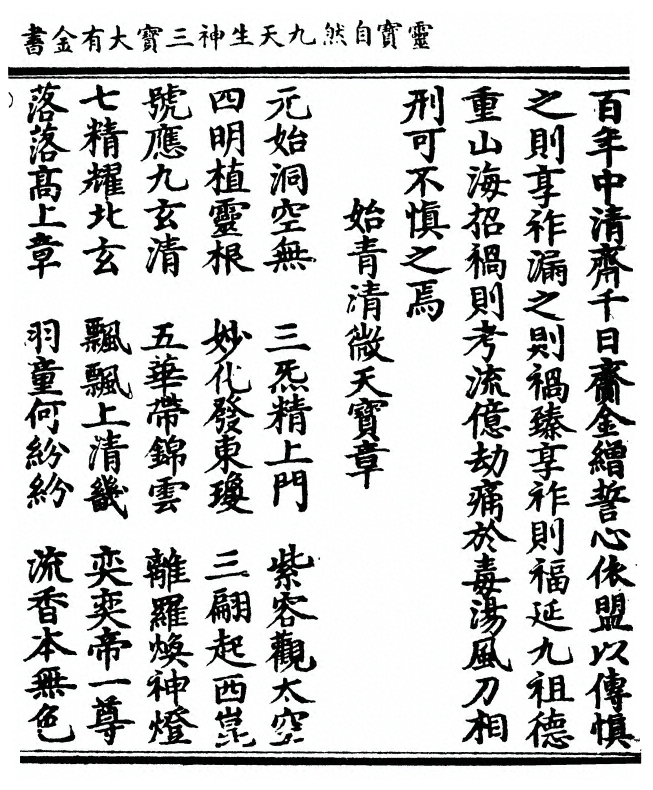 靈寶自然九天生神三寶大有金書
百年中清齋千日齎金繒誓心依盟以傳慎
之則享祚漏之則禍臻享祚則福延九祖德
重山海招禍則考流億劫痛於毒湯風刀相
刑可不慎之焉
始青清微天寶章
元始洞空無 三炁精上門 紫容觀太空
四明植靈根 妙化發東瓊 三翮起西崑
號應九玄清 五華帶錦雲 離羅煥神燈
七精耀北玄 飄飄上清畿 奕奕帝一尊
落落高上章 羽童何紛紛 流香本無色